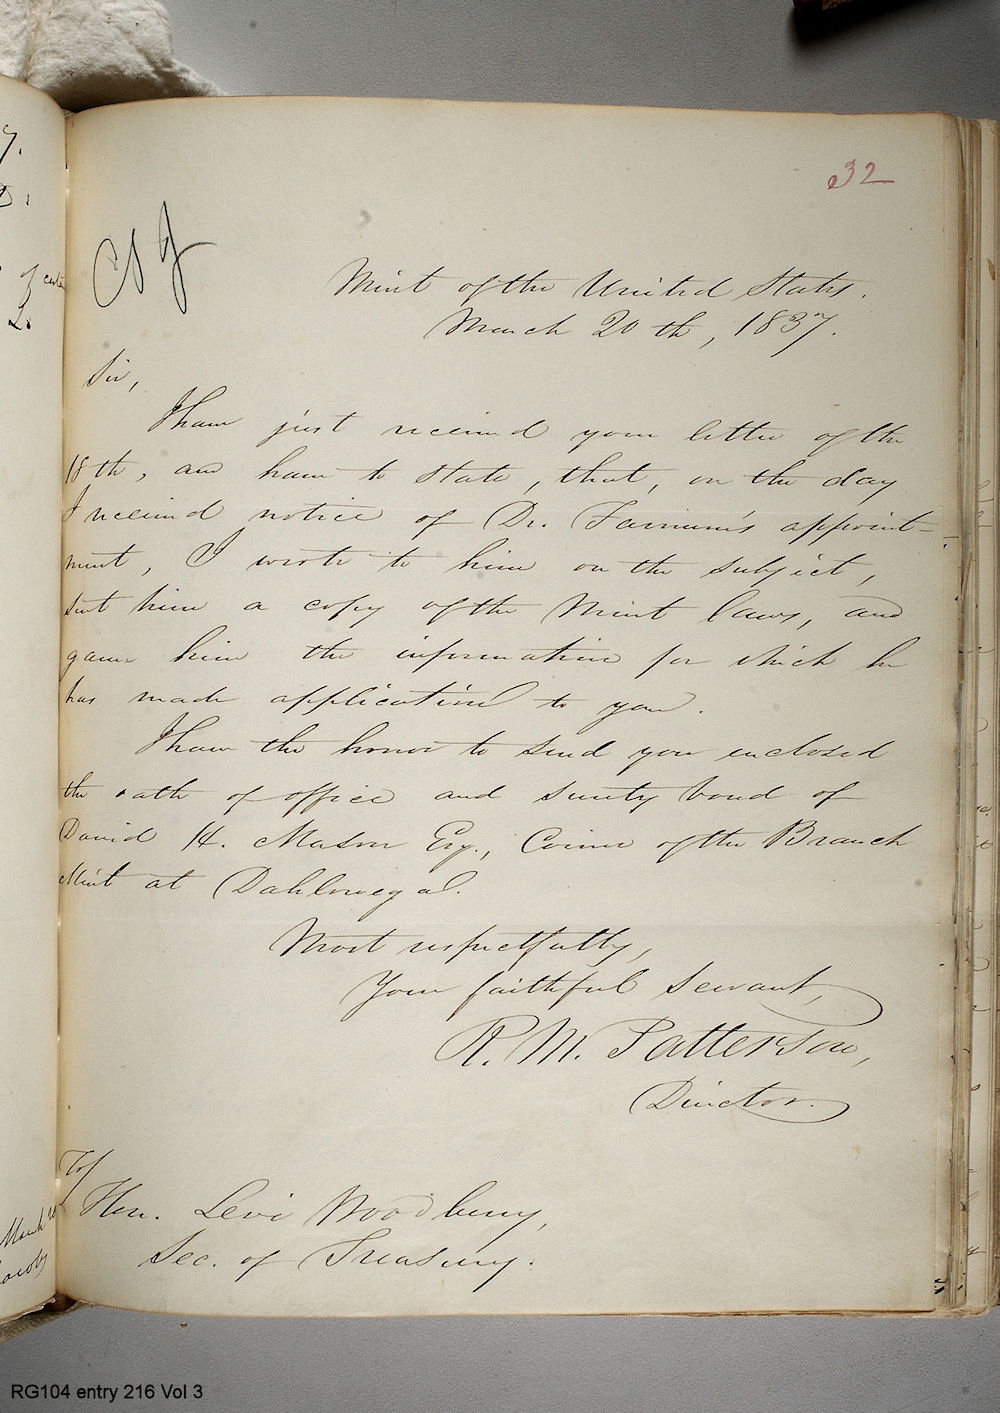 32
Mint of the United States.
March 20th, 1837.
Sir,
I have just received your letter of the
18th, and have to state, that, on the day
I received notice of Dr. Farnum's appoint-
ment, I wrote to him on the subject,
sent him a copy of the Mint laws, and
gave him the information for which he
has made application to you.
I have the honor to send you enclosed
the oath of office and surety bond of
David H. Mason Esq., Coiner of the Branch
Mint at Dahlonega.
Most respectfully,
Your faithful servant,
R. M. Patterson,
Director.
To
Hon. Levi Woodbury,
Sec. of Treasury.
RG104 entry 216 Vol 3